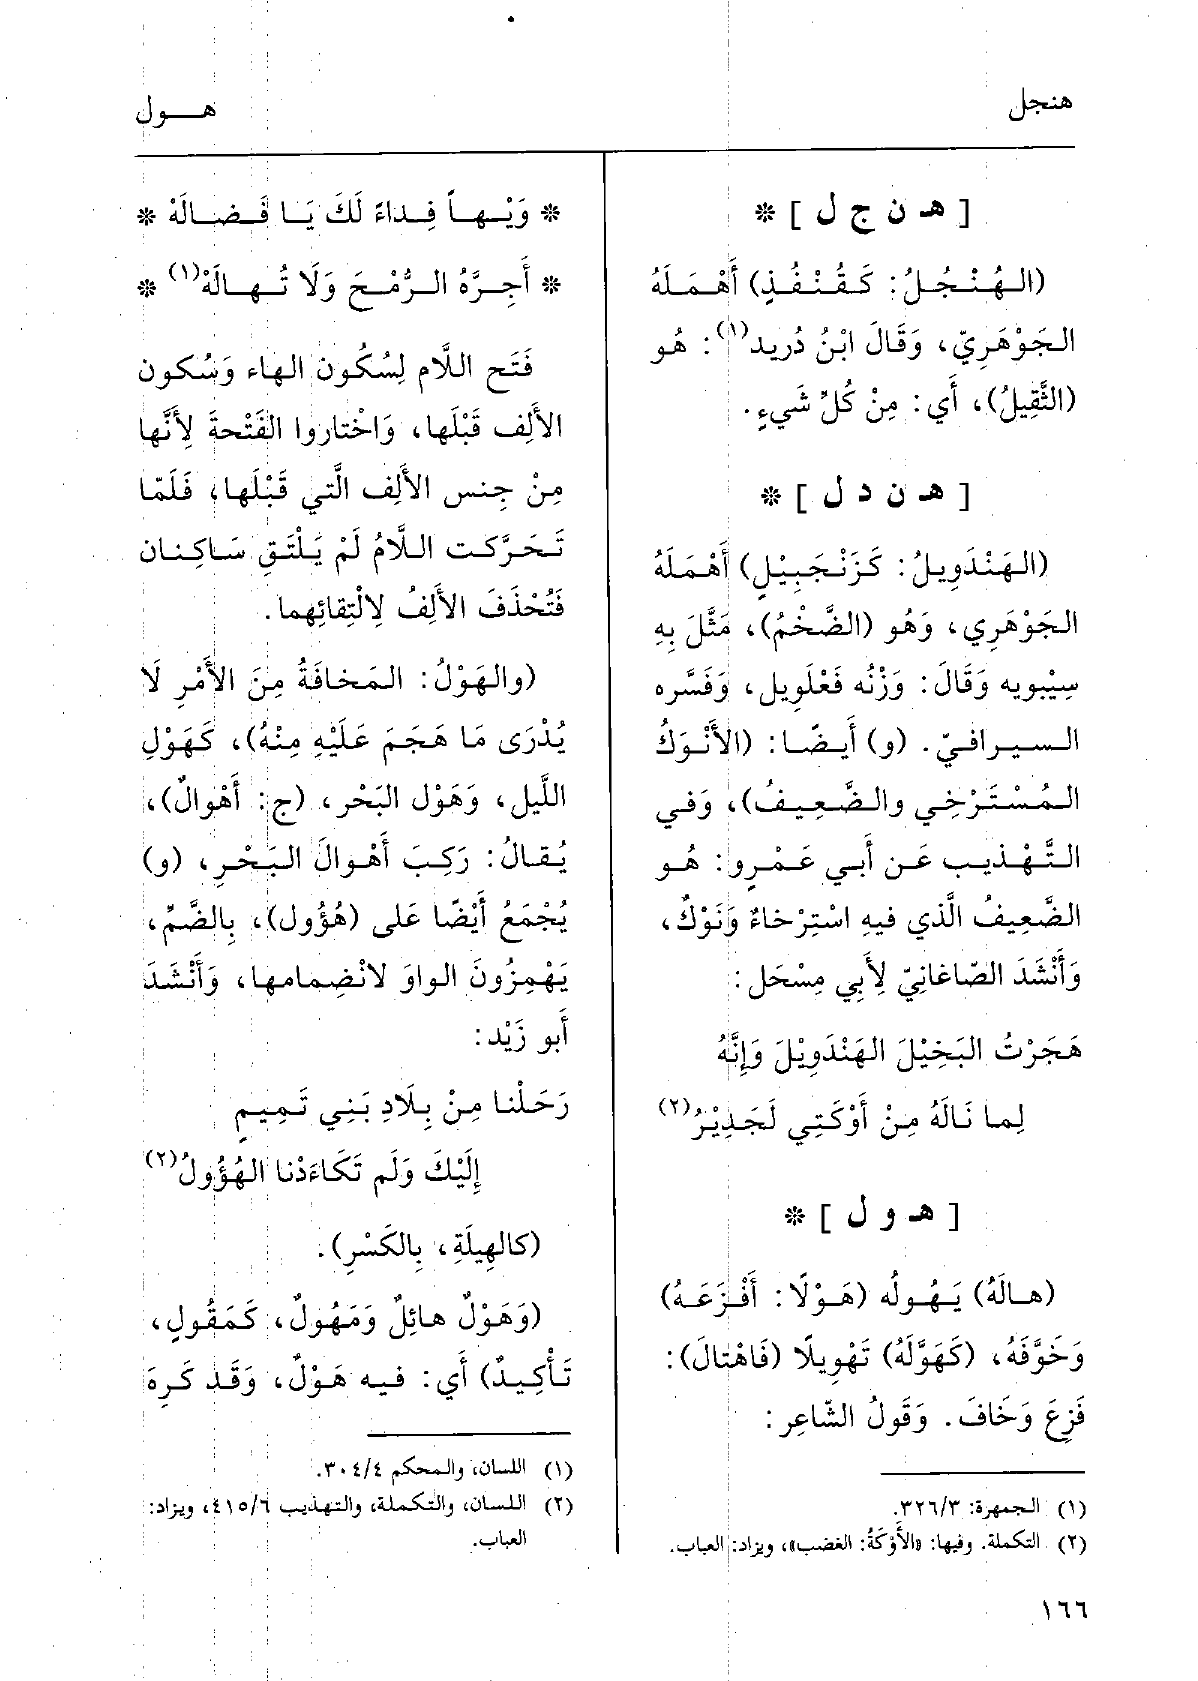 هنجل
هــول
[ هـ ن ج ل ] *
(الـهُـنْـجُـلُ: كَـقُـنْـفُـذٍ) أَهْـمَـلَهُ
الجَوْهَرِيّ، وَقَالَ ابْنُ دُريد(١): هُو
(الثَّقِيلُ)، أَي: مِنْ كُلِّ شَيءٍ.
[ هـ ن د ل ] *
(الهَنْدَوِيلُ: كَزَنْجَبِيْلٍ) أَهْمَلَهُ
الجَوْهَرِي، وَهُو (الضَّخْمُ)، مَثَّلَ بِهِ
سِيْبويه وَقَالَ: وَزْنُه فَعْلَويل، وَفَسَّره
السيرافيّ. (و) أَيضًا: (الأَنْوَكُ
المُسْتَرْخِي والضَّعِيفُ)، وَفي
التَّهْذيب عَن أَبي عَمْرو: هُو
الضَّعِيفُ الَّذي فيهِ اسْتِرْخاءٌ وَنَوْكٌ،
وَأَنْشَدَ الصّاغانِيّ لِأَبِي مِسْحَل:
هَجَرْتُ البَخِيْلَ الهَنْدَوِيْلَ وَإِنَّهُ
لِما نَالَهُ مِنْ أَوْكَتِي لَجَدِيْرُ(٢)
[ هـ و ل ] *
(هـالَهُ) يَـهُـولُه (هَـوْلًا: أَفْـزَعَـهُ)
وَخَوَّفَهُ، (كَهَوَّلَهُ) تَهْوِيلًا (فَاهْتَالَ):
فَزِعَ وَخَافَ. وَقَولُ الشّاعِر:
(١) الجمهرة: ٣٢٦/٣.
(٢) التكملة. وفيها: «الأَوْكَةُ: الغضب»، ويزاد: العباب.
* وَيْـهـاً فِـداءً لَكَ يَـا فَـضـالَهْ *
* أَجِـرَّهُ الـرُّمْـحَ وَلَا تُـهـالَهْ(١) *
فَتَح اللَّام لِسُكُون الهاء وَسُكون
الأَلِف قَبْلَها، وَاخْتاروا الفَتْحةَ لِأَنَّها
مِنْ جِنس الأَلِف الَّتي قَبْلَها، فَلَمّا
تَحَرَّكت اللَّامُ لَمْ يَلْتَقِ سَاكِنان
فَتُحْذَفَ الأَلِفُ لِالْتِقائِهما.
(والهَوْلُ: المَخافَةُ مِنَ الأَمْرِ لَا
يُدْرَى مَا هَجَمَ عَلَيْهِ مِنْهُ)، كَهَوْلِ
اللَّيل، وَهَوْل البَحْر، (ج: أَهْوالٌ)،
يُقالُ: رَكِبَ أَهْوالَ البَحْرِ، (و)
يُجْمَعُ أَيْضًا عَلى (هُؤُول)، بِالضَّمِّ،
يَهْمِزُونَ الواوَ لانْضِمامها، وَأَنْشَدَ
أَبو زَيْد:
رَحَلْنا مِنْ بِلَادِ بَنِي تَمِيمٍ
إِلَيْكَ وَلَم تَكَاءَدْنا الهُؤُولُ(٢)
(كالهِيلَةِ، بِالكَسْرِ).
(وَهَوْلٌ هائِلٌ وَمَهُولٌ، كَمَقُولٍ،
تَأْكِيدٌ) أَي: فيه هَوْلٌ، وَقَد كَرِهَ
(١) اللسان، والمحكم ٣٠٤/٤.
(٢) اللسان، والتكملة، والتهذيب ٤١٥/٦، ويزاد:
العباب.
١٦٦